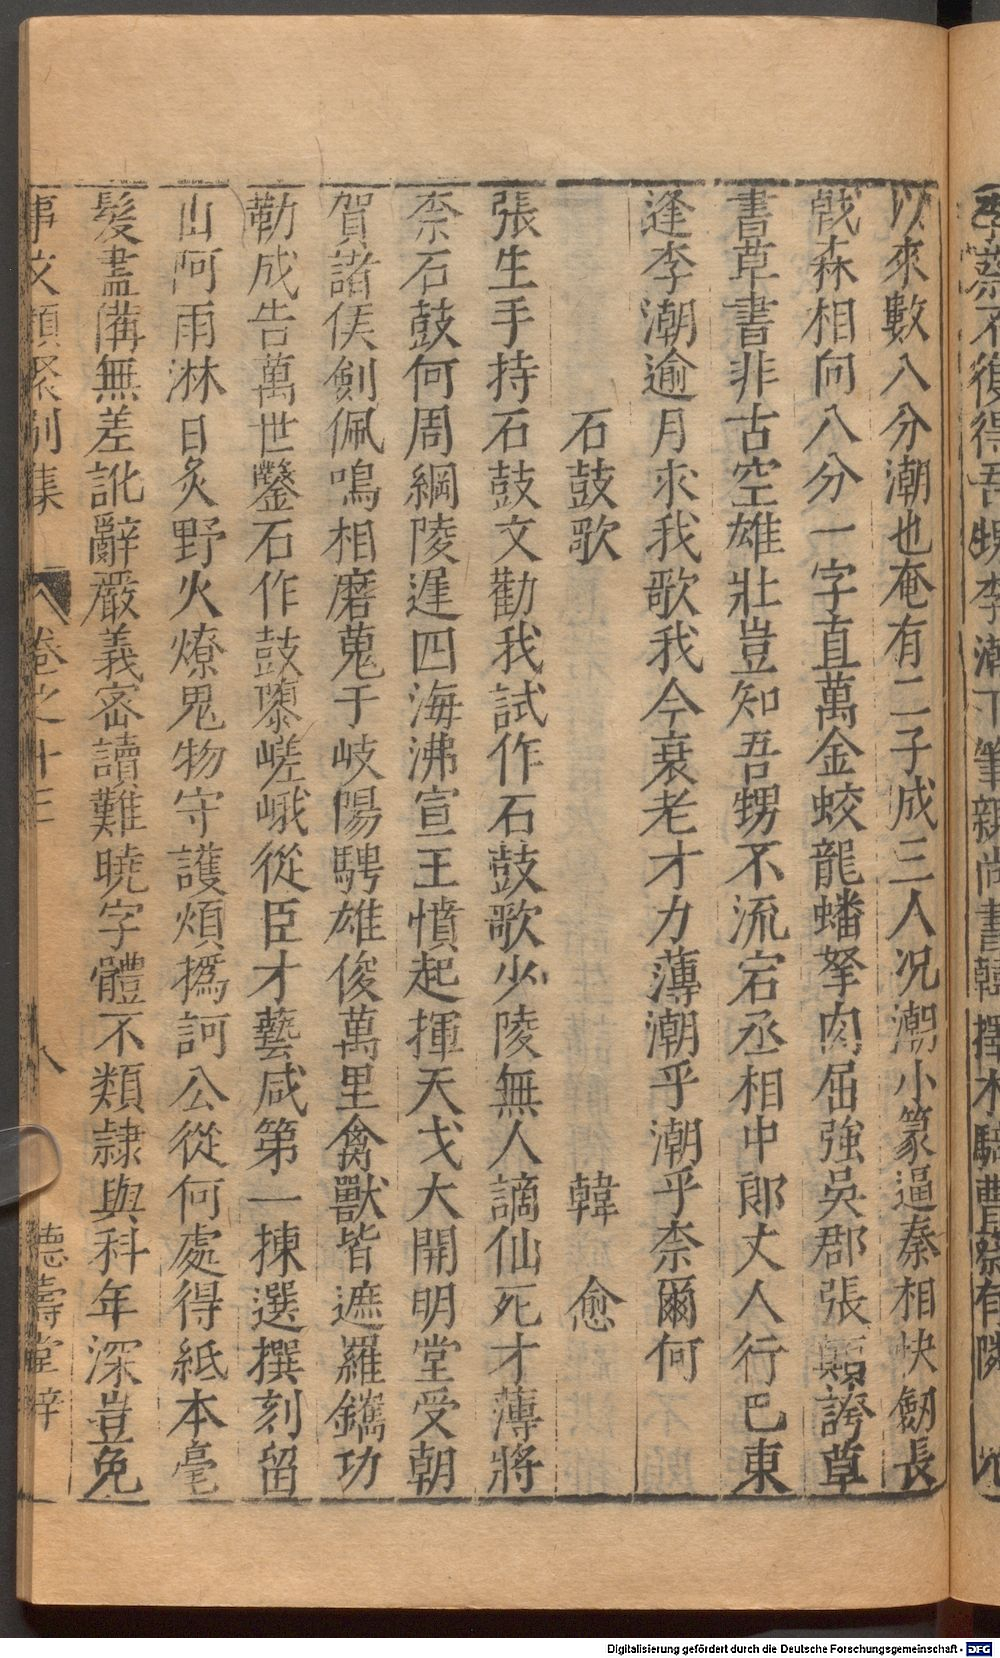 李蔡不復得吾甥李潮下筆親尚書韓擇木騎曹蔡有隣
以來數八分潮也奄有二子成三人况潮小篆逼秦相快劒長
戟森相向八分一字直萬金蛟龍蟠拏肉屈強吳郡張顛誇草
書草書非古空雄壯豈知吾甥不流宕丞相中郎丈人行巴東
逢李潮逾月求我歌我今衰老才力薄潮乎潮乎柰爾何
石鼓歌 韓愈
張生手持石鼓文勸我試作石鼓歌少陵無人謫仙死才薄將
柰石鼓何周綱陵遲四海沸宣王憤起揮天戈大開明堂受朝
賀諸侯劍佩鳴相磨蒐于岐陽騁雄俊萬里禽獸皆遮羅鐫功
勒成告萬世鑿石作鼓隳嵯峨從臣才藝咸第一揀選撰刻留
山阿雨淋日炙野火燎鬼物守護煩撝訶公從何處得紙本毫
髮盡備無差訛辭嚴義密讀難曉字體不類隷與科年深豈免
事文類聚別集 卷之十三 八 德壽堂梓
Digitalisierung gefördert durch die Deutsche Forschungsgemeinschaft - DFG